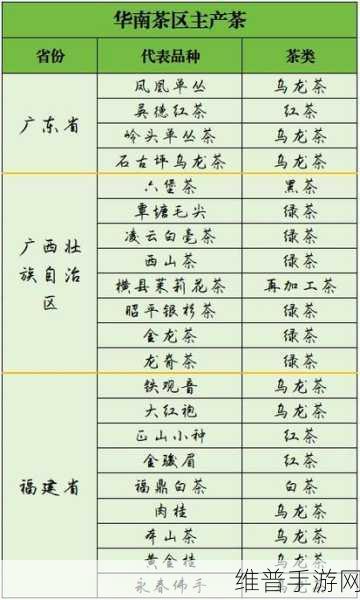 华南茶区主产茶
省份 代表品种 茶类
广东省
凤凰单丛 乌龙茶
英德红茶 红茶
岭头单丛茶 乌龙茶
石古坪乌龙茶 乌龙茶
广西壮族自治区
六堡茶 黑茶
覃塘毛尖 绿茶
凌云白毫茶 绿茶
西山茶 绿茶
横县茉莉花茶 再加工茶
昭平银杉茶 绿茶
金龙茶 绿茶
龙脊茶 绿茶
福建省
铁观音 乌龙茶
大红袍 乌龙茶
正山小种 红茶
金骏眉 红茶
福鼎白茶 白茶
肉桂 乌龙茶
本山茶 乌龙茶
黄金桂 乌龙茶
永春佛手 乌龙茶
维普手游网